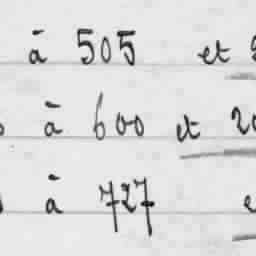 à 505 et
à 600 et 20
à 727 e